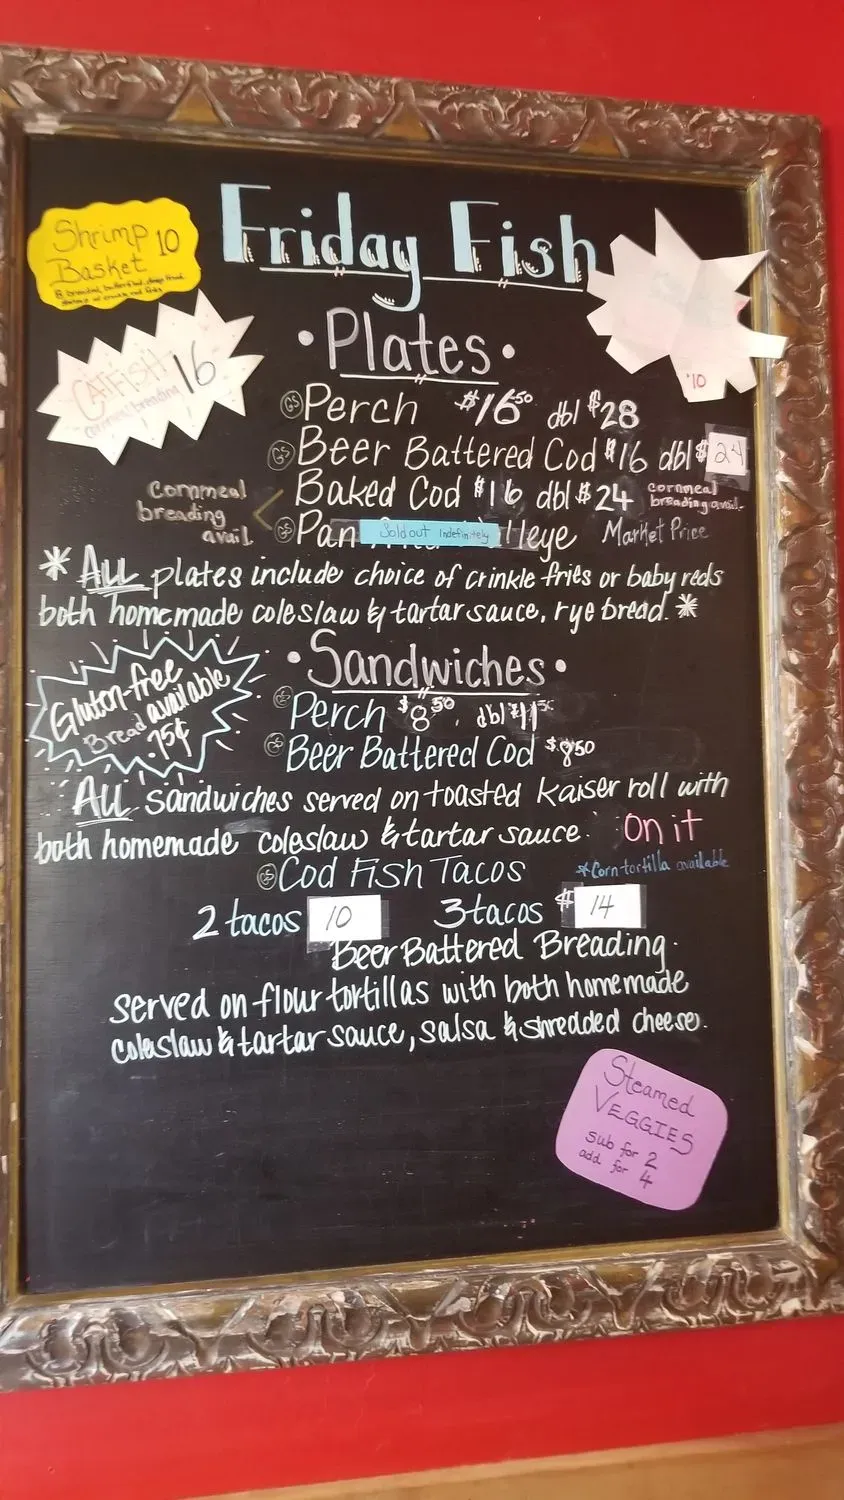 Friday Fish
Shrimp 10
Basket
CATFISH 16
cornmeal breading
$10
• Plates •
GS Perch $16.50 dbl $28
GS Beer Battered Cod $16 dbl $24
Baked Cod $16 dbl $24 cornmeal breading avail.
Cornmeal
breading
avail.
GS Pan Sold out Indefinitely lleye Market Price
* ALL plates include choice of crinkle fries or baby reds
both homemade coleslaw & tartar sauce, rye bread. *
Gluton-free
Bread available
.75¢
• Sandwiches •
GS Perch $8.50 dbl $11.50
GS Beer Battered Cod $8.50
ALL sandwiches served on toasted kaiser roll with
both homemade coleslaw & tartar sauce. on it
GS Cod Fish Tacos *Corn tortilla available
2 tacos 10 3 tacos $14
Beer Battered Breading.
served on flour tortillas with both homemade
coleslaw & tartar sauce, salsa & shredded cheese.
Steamed
VEGGIES
sub for 2
add for 4